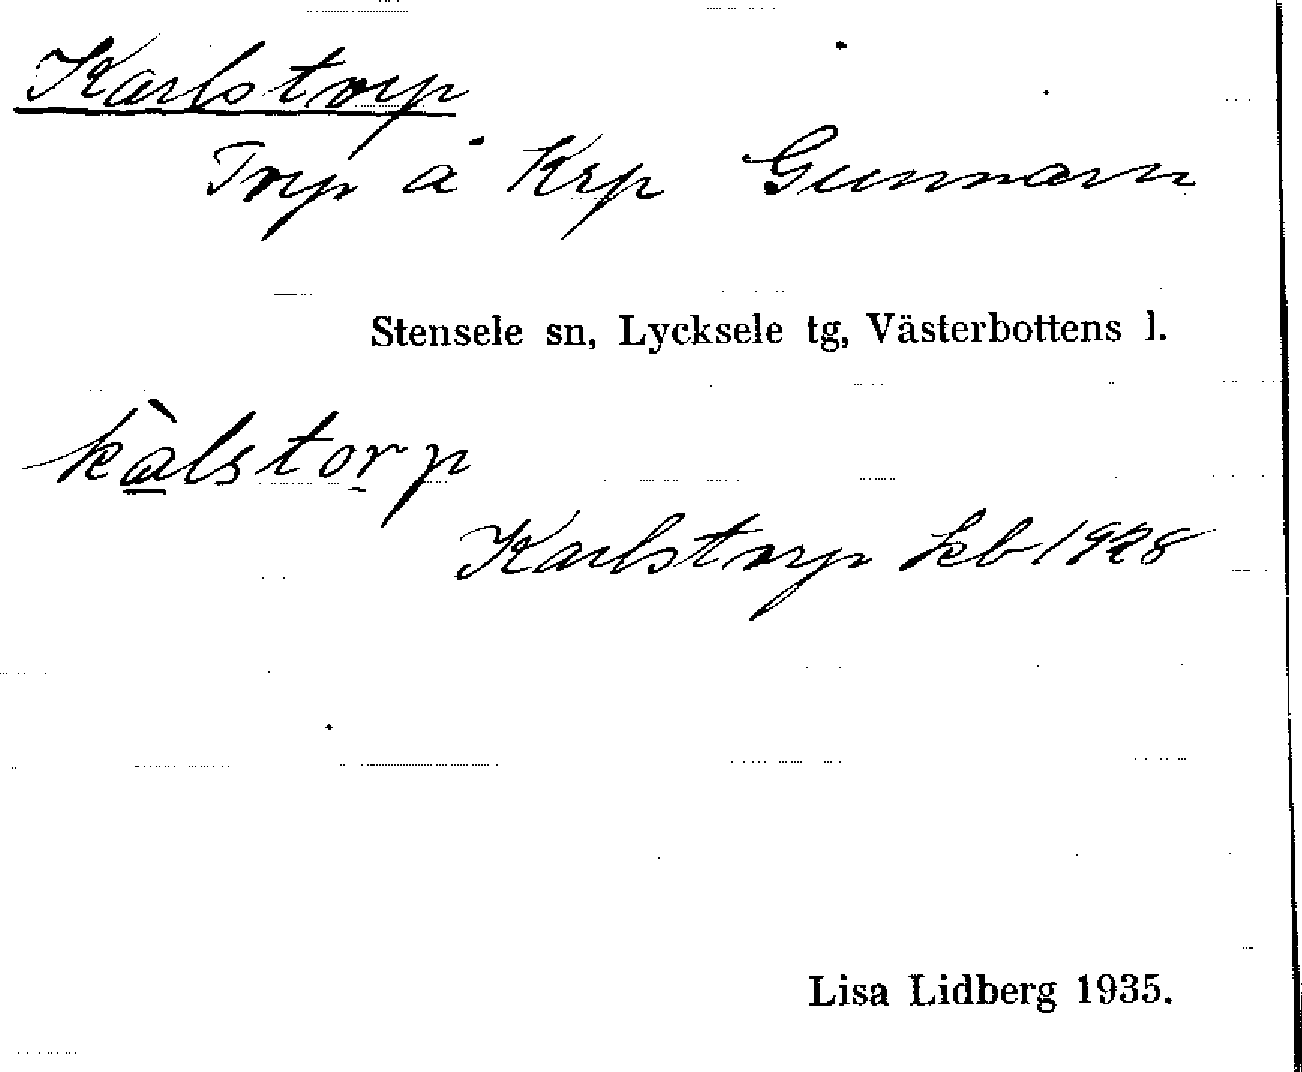 Karlstorp
Torp å Krp Gunnarn
Stensele sn, Lycksele tg, Västerbottens l.
kàlstorp
Karlstorp kb 1928
Lisa Lidberg 1935.